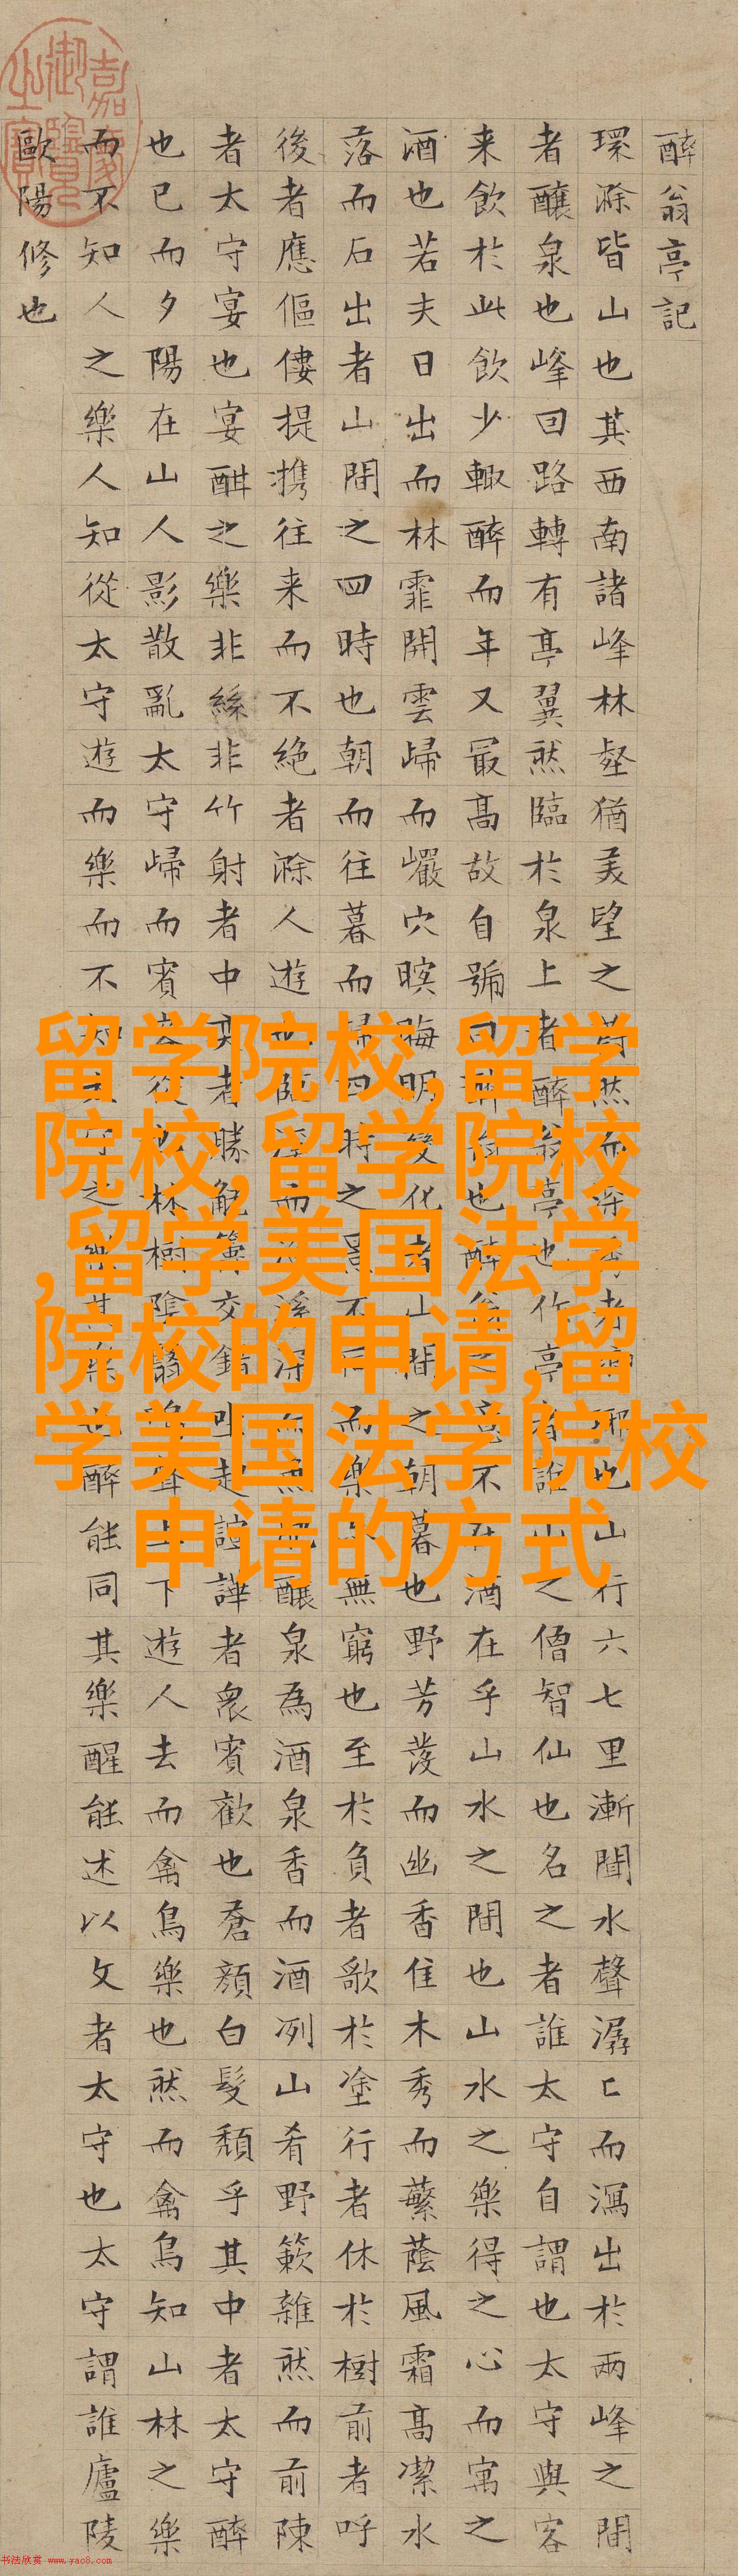 醉翁亭記
環滁皆山也其西南諸峰林壑猶美望之蔚然而深秀者瑯琊也山行六七里漸聞水聲潺〻而瀉出於兩峰之間
者釀泉也峰回路轉有亭翼然臨於泉上者醉翁亭也作亭者誰山之僧智仙也名之者誰太守自謂也太守與客
来飲於此飲少輒醉而年又最高故自號曰醉翁也醉翁之意不在酒在乎山水之間也山水之樂得之心而寓之
酒也若夫日出而林霏開雲歸而巖穴暝晦明變化者山間之朝暮也野芳發而幽香佳木秀而蘩蔭風霜高潔水
落而石出者山間之四時也朝而往暮而歸四時之景不同而樂亦無窮也至於負者歌於塗行者休於樹前者呼
後者應傴僂提携往来而不絶者滁人遊也臨溪而漁溪深而魚肥釀泉為酒泉香而酒冽山肴野蔌雜然而前陳
者太守宴也宴酣之樂非絲非竹射者中奕者勝觥籌交錯坐起諠譁者衆賓歡也蒼顔白髮頹乎其中者太守醉
也已而夕陽在山人影散亂太守歸而賓客從也林樹陰翳鳴聲上下遊人去而禽鳥樂也然而禽鳥知山林之樂
而不知人之樂人知從太守遊而樂而不知太守之樂其樂也醉能同其樂醒能述以文者太守也太守謂誰廬陵
歐陽修也
嘉慶御覽之寶
留学院校,留学
院校,留学院校
,留学美国法学
院校的申请,留
学美国法学院校
申请的方式
书法欣赏 www.yac8.com